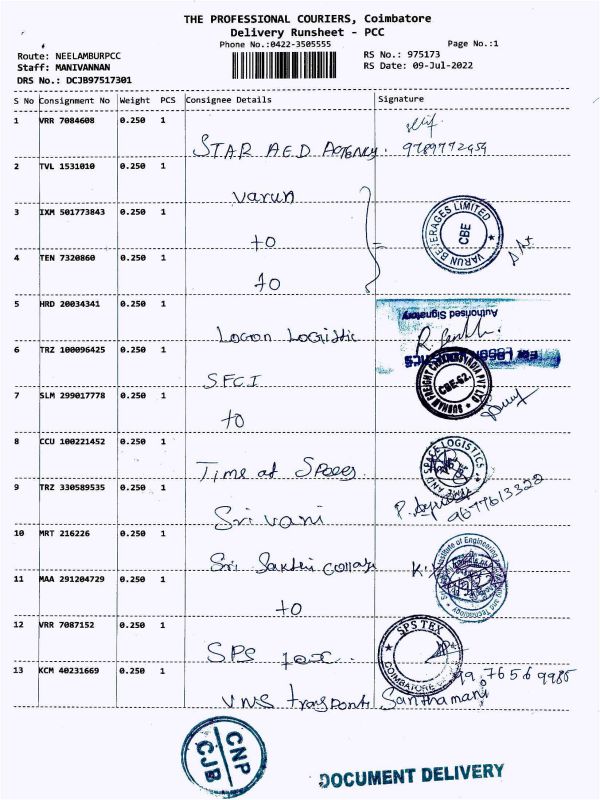 THE PROFESSIONAL COURIERS, Coimbatore
Delivery Runsheet - PCC
Phone No.:0422-3505555 Page No.:1
Route: NEELAMBURPCC RS No.: 975173
Staff: MANIVANNAN RS Date: 09-Jul-2022
DRS No.: DCJB97517301
S No Consignment No Weight PCS Consignee Details Signature
1 VRR 7084608 0.250 1
STAR A.E.D AGENCY. 9789772459
2 TVL 1531010 0.250 1
varun
3 IXM 501773843 0.250 1
to
VARUN BEVERAGES LIMITED
CBE
4 TEN 7320860 0.250 1
to
5 HRD 20034341 0.250 1
Authorised Signatory
Logon Logistic
6 TRZ 100096425 0.250 1
SFCI
CBE-62.
7 SLM 299017778 0.250 1
to
8 CCU 100221452 0.250 1
TIME AND SPACE LOGISTICS
Time and Spaces
9 TRZ 330589535 0.250 1
9677613322
Sri vani
10 MRT 216226 0.250 1
Sri Sakthi college
Institute of Engineering and Technology
11 MAA 291204729 0.250 1
to
12 VRR 7087152 0.250 1
SPS TEX
COIMBATORE
SPS tex
13 KCM 40231669 0.250 1
99,76569985
VMS transport Santhamani
CNP
CJB
DOCUMENT DELIVERY